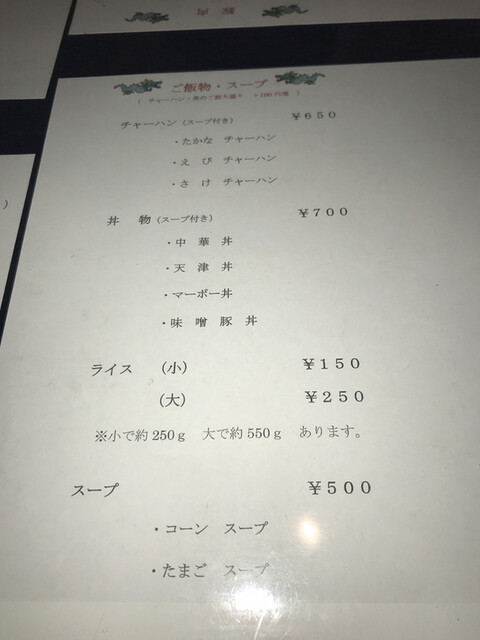 ご飯物・スープ
( チャーハン・丼のご飯大盛り ＋100円増 )
チャーハン (スープ付き) ￥650
・たかな チャーハン
・え び チャーハン
・さ け チャーハン
丼 物 (スープ付き) ￥700
・中 華 丼
・天 津 丼
・マーボー丼
・味 噌 豚 丼
ライス (小) ￥150
(大) ￥250
※小で約250ｇ 大で約550ｇ あります。
スープ ￥500
・コーン スープ
・たまご スープ